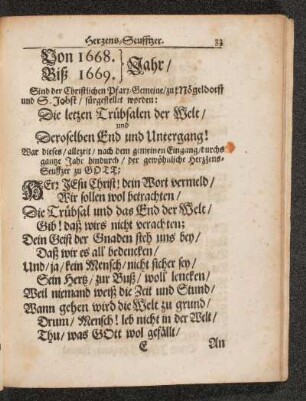 Hertzens-Seufftzer. 33
Von 1668.
Biß 1669. } Jahr/
Sind der Christlichen Pfarr-Gemeine/zu Mögeldorff
und S. Jobst/ fürgestellet worden:
Die letzen Trübsalen der Welt/
und
Deroselben End und Untergang!
War dieses/ allezeit/ nach dem gemeinen Eingang/ durchs
gantze Jahr hindurch/ der gewöhnliche Hertzens-
Seufftzer zu GOTT:
HErr JEsu Christ! dein Wort vermeld/
Wir sollen wol betrachten/
Die Trübsal und das End der Welt/
Gib! daß wirs nicht verachten;
Dein Geist der Gnaden steh uns bey/
Daß wir es all bedencken/
Und/ja/kein Mensch/nicht sicher sey/
Sein Hertz/ zur Buß/ woll lencken/
Weil niemand weiß die Zeit und Stund/
Wann gehen wird die Welt zu grund/
Drum/ Mensch! leb nicht in der Welt/
Thu/ was GOtt wol gefällt/
E An